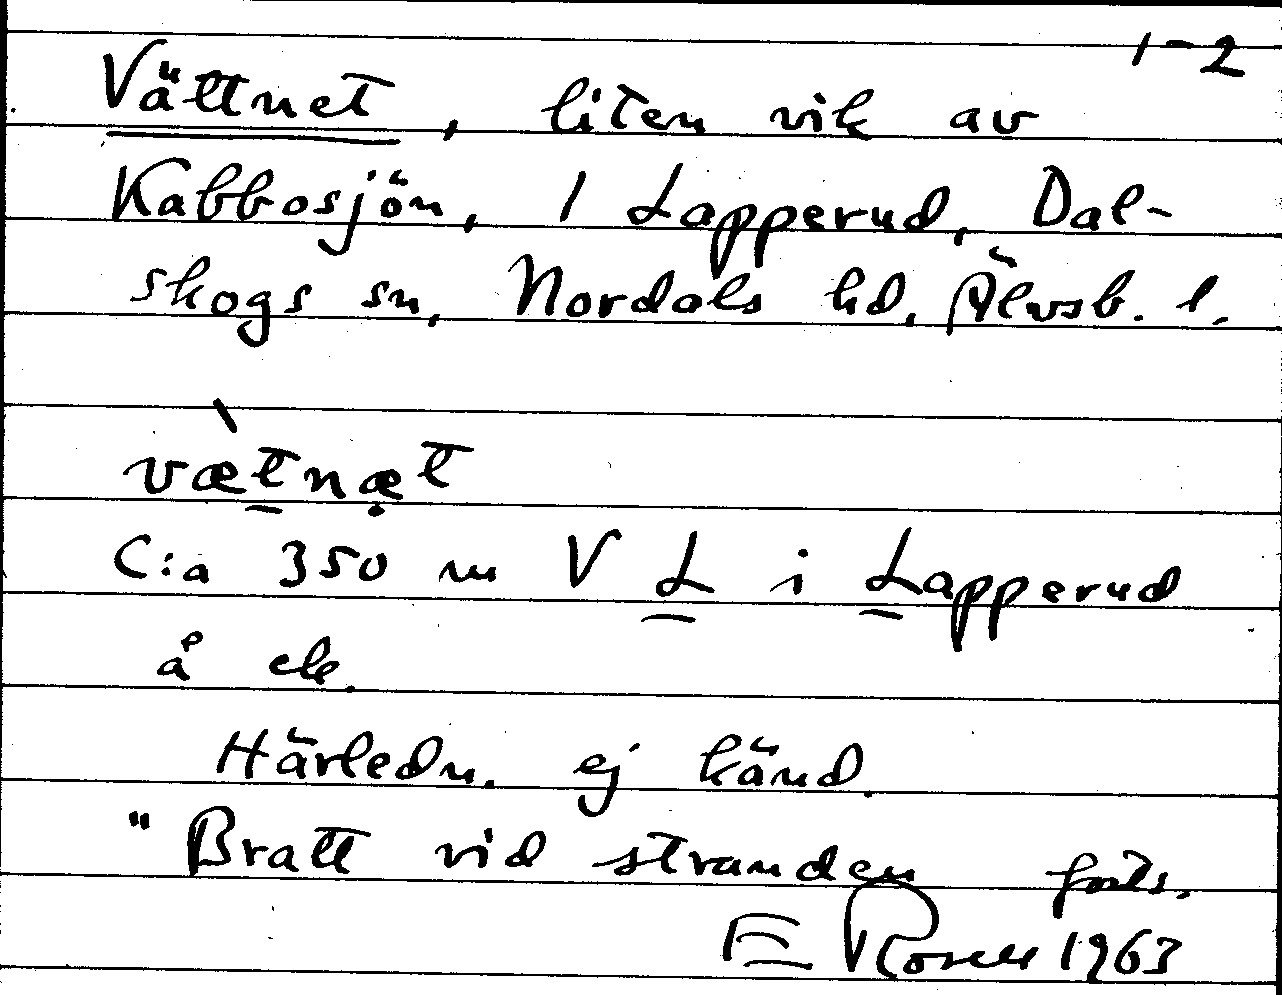 1-2
Vättnet, liten vik av
Kabbosjön, 1 Lapperud, Dal-
skogs sn, Nordals hd, Älvsb. l.
vætnæt
C:a 350 m V L i Lapperud
å ek.
Härledn. ej känd.
"Bratt vid stranden forts.
E Rosell 1963